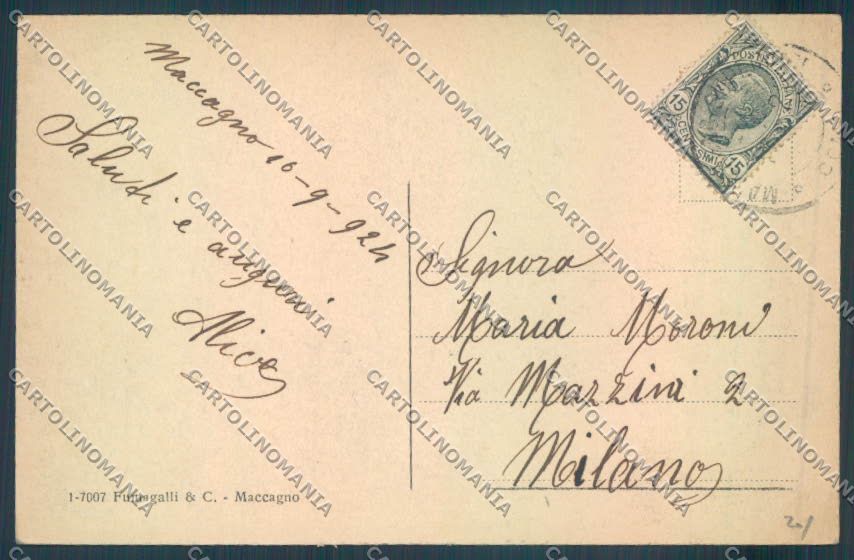 Maccagno 16-9-924
Saluti e auguri
Alice
Signora
Maria Moroni
Via Mazzini 2
Milano
1-7007 Fumagalli & C. - Maccagno
POSTE ITALIANE
15 CENTESIMI 15
20/
CARTOLINOMANIA